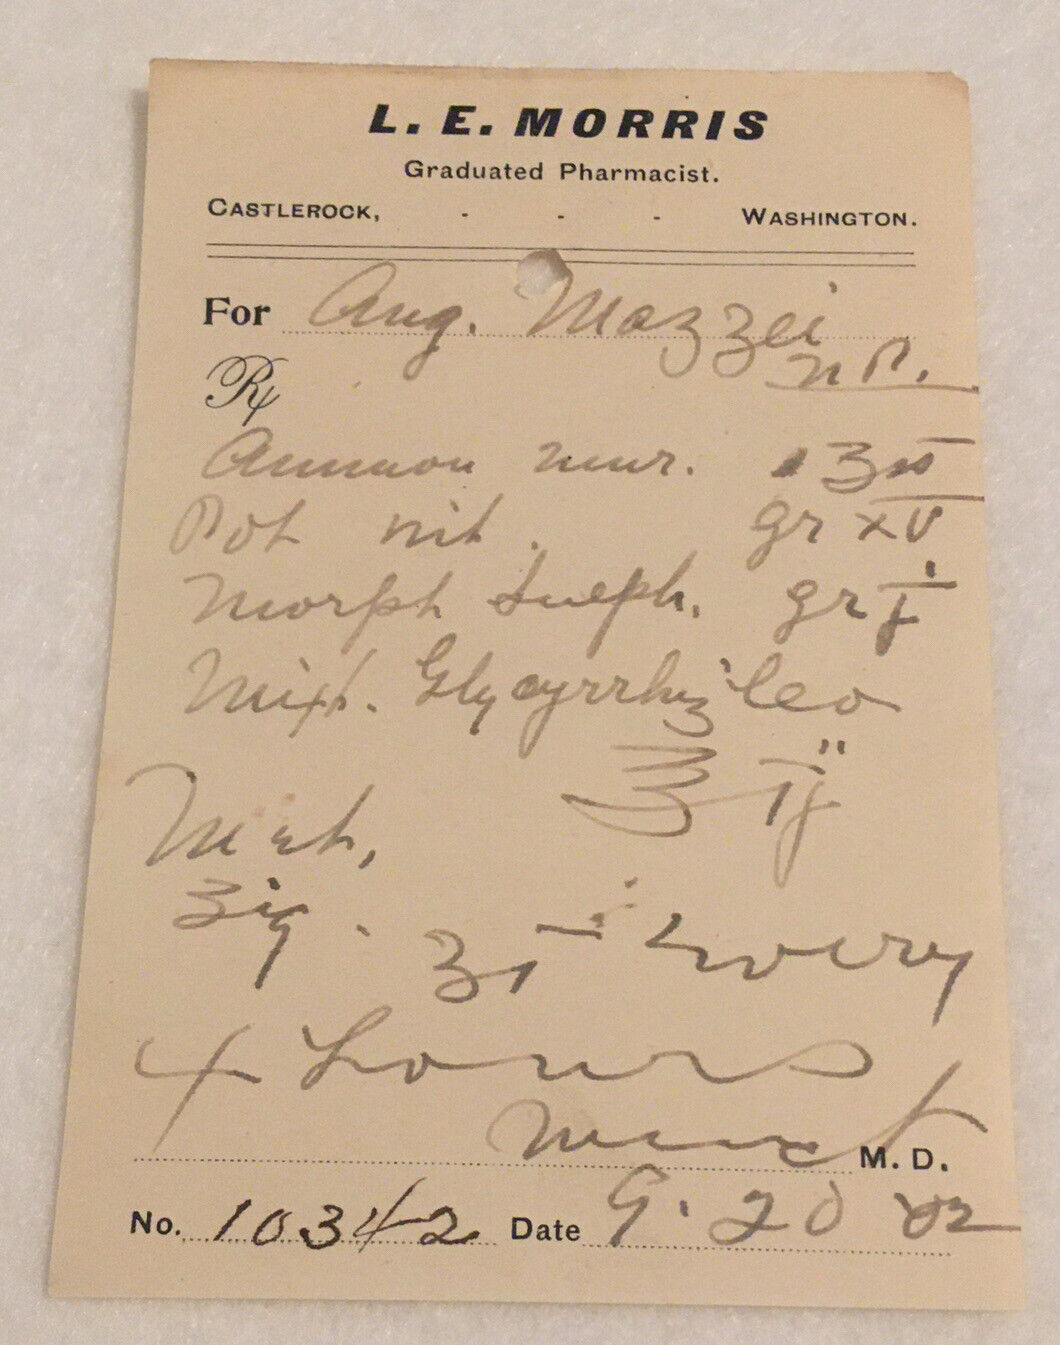 L. E. MORRIS
Graduated Pharmacist.
CASTLEROCK, - - - WASHINGTON.
For Aug. Mazzei
N R.
℞
Ammon mur. ʒss
Pot nit. gr xv
Morph Sulph. gr j
Mixt. Glycyrrhiz Co
℥ ij
M
Sig. ʒ i Every
4 hours
M. D.
No. 10342 Date 9. 20 '02